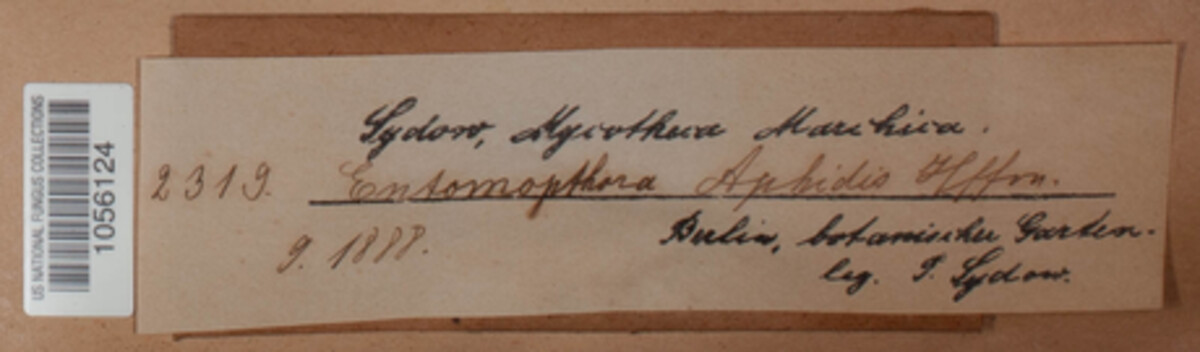 US NATIONAL FUNGUS COLLECTIONS
10556124
Sydow, Mycotheca Marchica.
2319. Entomopthora Aphidis Hffm.
9. 1888.
Berlin, botanischer Garten.
leg. P. Sydow.